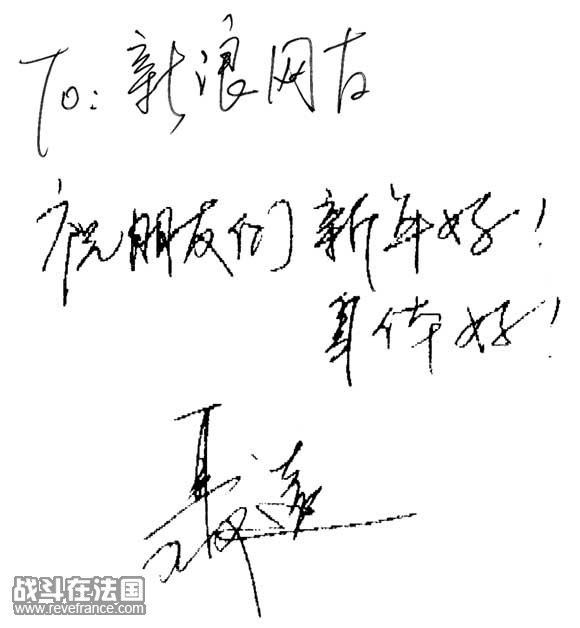 To: 新浪网友
祝朋友们新年好!
身体好!
聂远
战斗在法国
www.revefrance.com